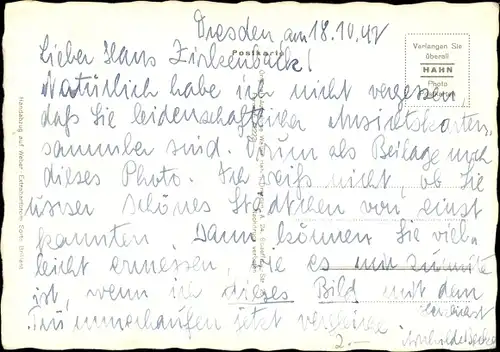 Dresden, am 18.10.47
Postkarte
Lieber Hans Zirkenbäck!
Natürlich habe ich nicht vergessen,
daß Sie leidenschaftlicher Ansichtskarten-
sammler sind. Drum als Beilage noch
dieses Photo. Ich weiß nicht, ob Sie
unser schönes Städtchen von einst
kannten. Dann können Sie viel-
leicht ermessen, wie es mir zumute
ist, wenn ich dieses Bild mit dem
Trümmerhaufen jetzt vergleiche.
Herzlichst
2.-
Verlangen Sie
überall
HAHN
Photo
Handabzug auf Weber Extrahartbern